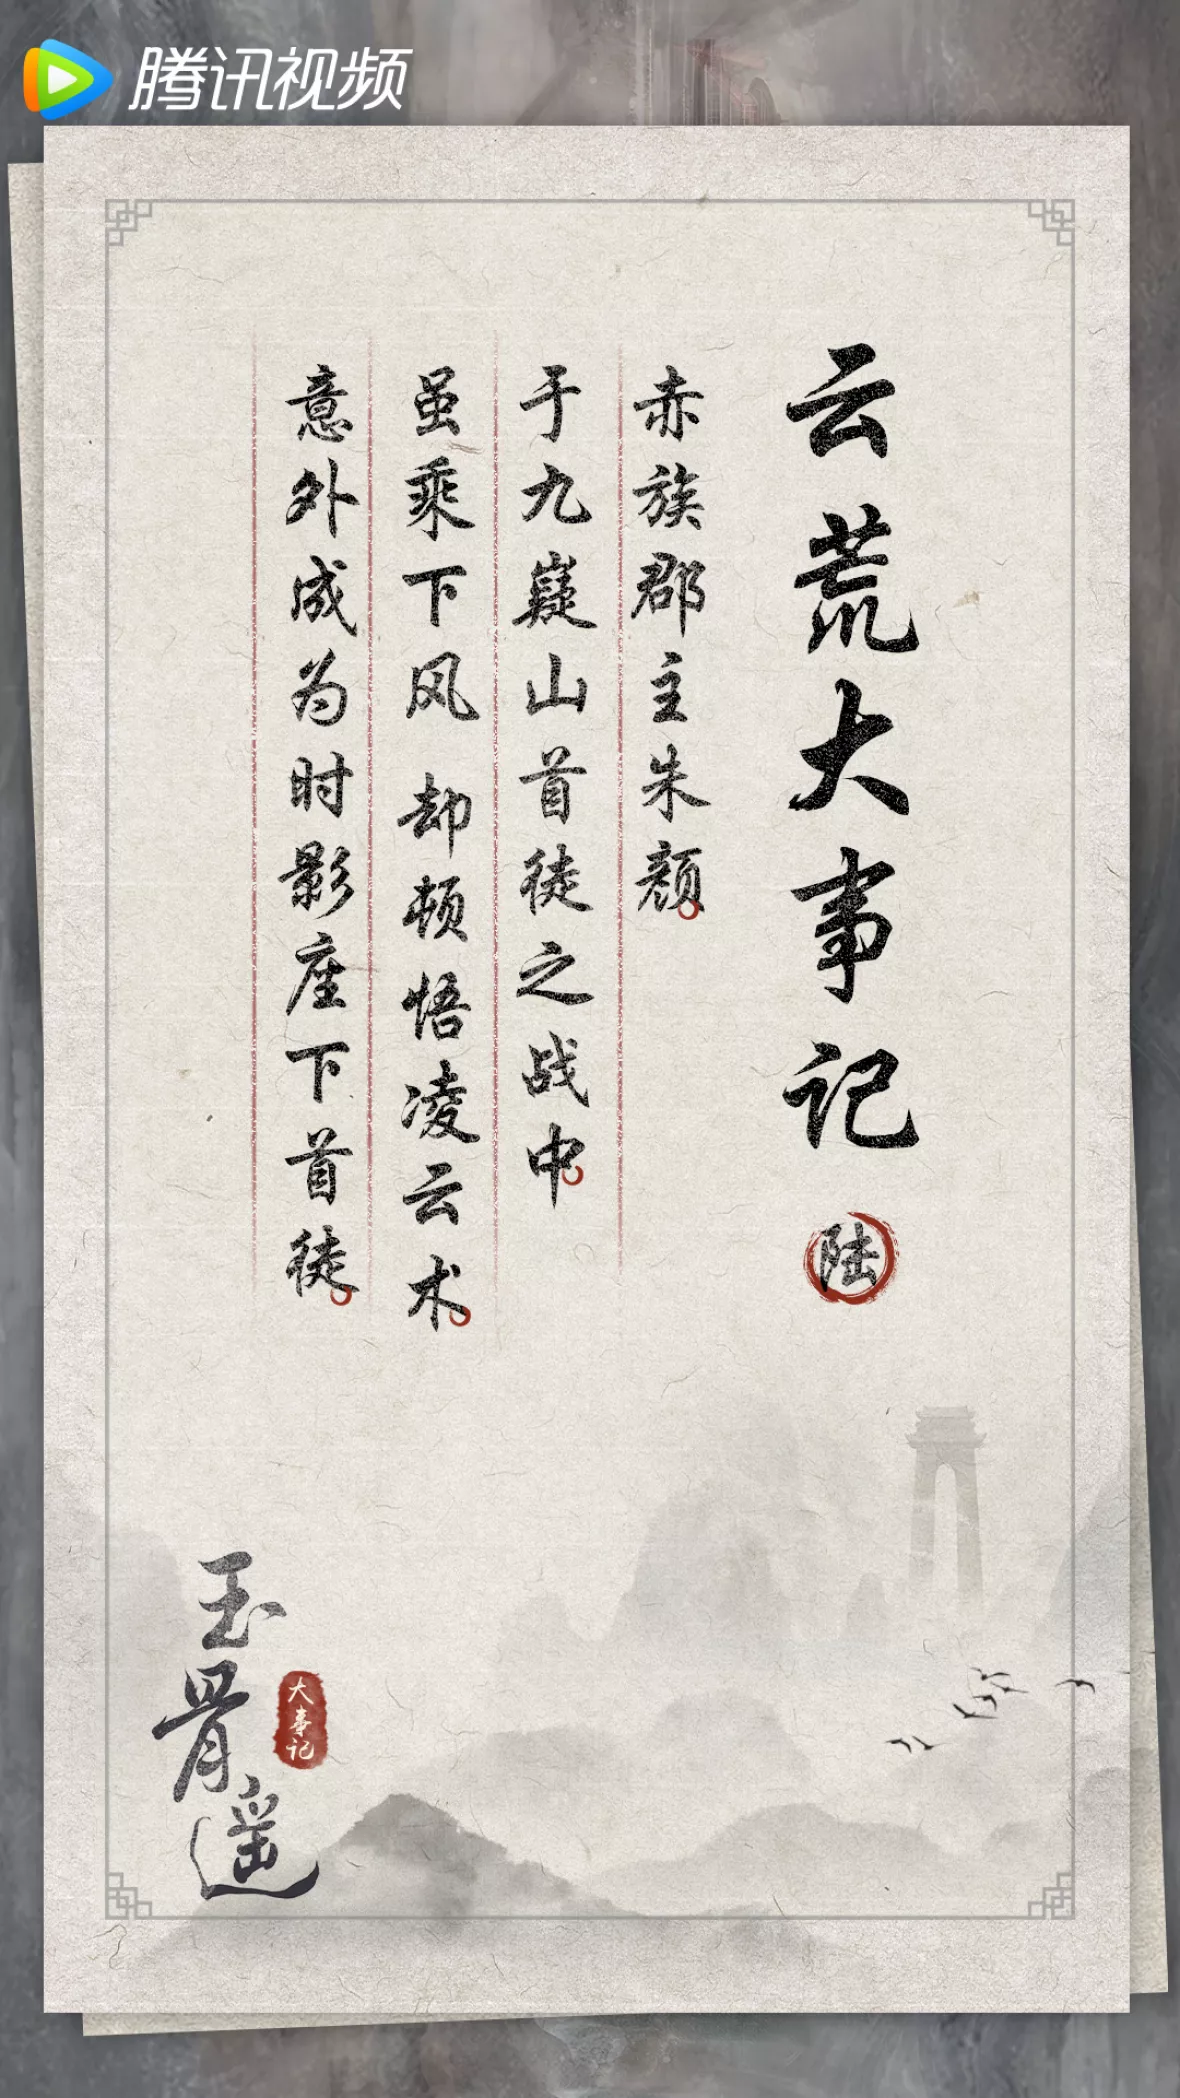 腾讯视频
云荒大事记 陆
赤族郡主朱颜
于九嶷山首徒之战中
虽乘下风 却顿悟凌云术
意外成为时影座下首徒
玉骨遥
大事记